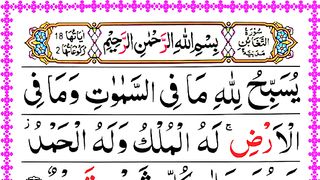 سُورَةُ التَّغَابُنِ مَدَنِيَّةٌ
بِسْمِ اللّٰهِ الرَّحْمٰنِ الرَّحِيْمِ
اٰيَاتُهَا 18
رُكُوْعَاتُهَا 2
يُسَبِّحُ لِلّٰهِ مَا فِى السَّمٰوٰتِ وَمَا فِى
الْاَرْضِ ۚ لَهُ الْمُلْكُ وَلَهُ الْحَمْدُ ؗ